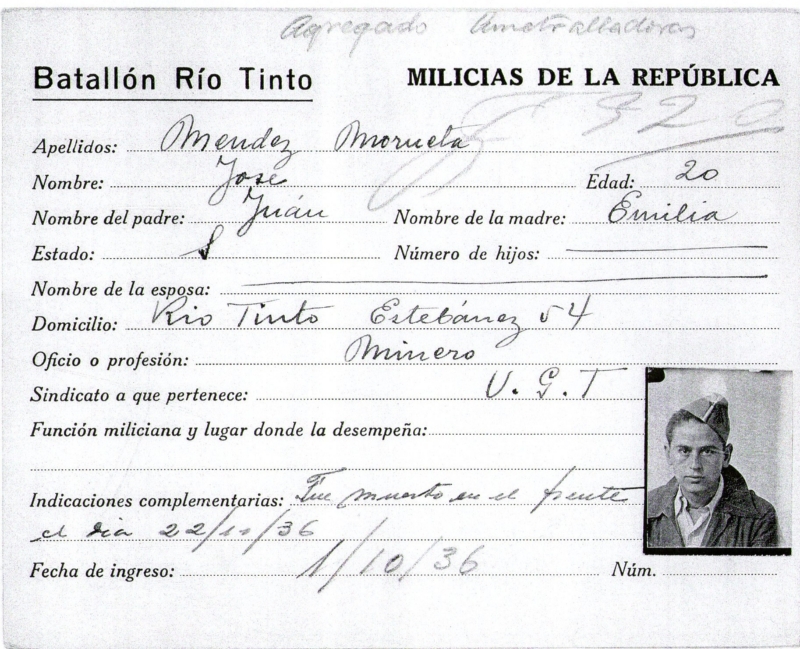 Agregado Ametralladoras
Batallón Río Tinto MILICIAS DE LA REPÚBLICA
920
Apellidos: Mendez Morueta
Nombre: Jose Edad: 20
Nombre del padre: Juán Nombre de la madre: Emilia
Estado: S Número de hijos:
Nombre de la esposa:
Domicilio: Rio Tinto Estebánez 54
Oficio o profesión: Minero
Sindicato a que pertenece: U.G.T
Función miliciana y lugar donde la desempeña:
Indicaciones complementarias: Fue muerto en el frente
el dia 22/11/36
Fecha de ingreso: 1/10/36 Núm.